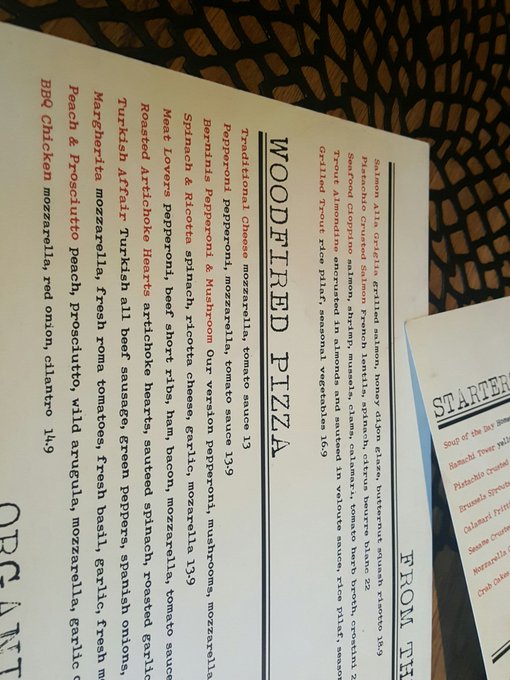 FROM TH
Salmon Alla Griglia grilled salmon, honey dijon glaze, butternut squash risotto 18.9
Pistachio Crusted Salmon French lentils, spinach, citrus beurre blanc 22
Seafood Choppino salmon, shrimp, mussels, clams, calamari, tomato herb broth, crostini 2
Trout Almondine encrusted in almonds and sauteed in veloute sauce, rice pilaf, season
Grilled Trout rice pilaf, seasonal vegetables 16.9
WOODFIRED PIZZA
Traditional Cheese mozzarella, tomato sauce 13
Pepperoni pepperoni, mozzarella, tomato sauce 13.9
Berninis Pepperoni & Mushroom Our version pepperoni, mushrooms, mozzarella
Spinach & Ricotta spinach, ricotta cheese, garlic, mozarella 13.9
Meat Lovers pepperoni, beef short ribs, ham, bacon, mozzarella, tomato sauce
Roasted Artichoke Hearts artichoke hearts, sauteed spinach, roasted garlic
Turkish Affair Turkish all beef sausage, green peppers, spanish onions,
Margherita mozzarella, fresh roma tomatoes, fresh basil, garlic, fresh m
Peach & Prosciutto peach, prosciutto, wild arugula, mozzarella, garlic
BBQ Chicken mozzarella, red onion, cilantro 14.9
ORGANI
STARTERS
Soup of the Day
Hamachi Tower
Pistachio Crusted
Brussels Sprouts
Calamari Fritti
Sesame Crusted
Mozzarella
Crab Cakes